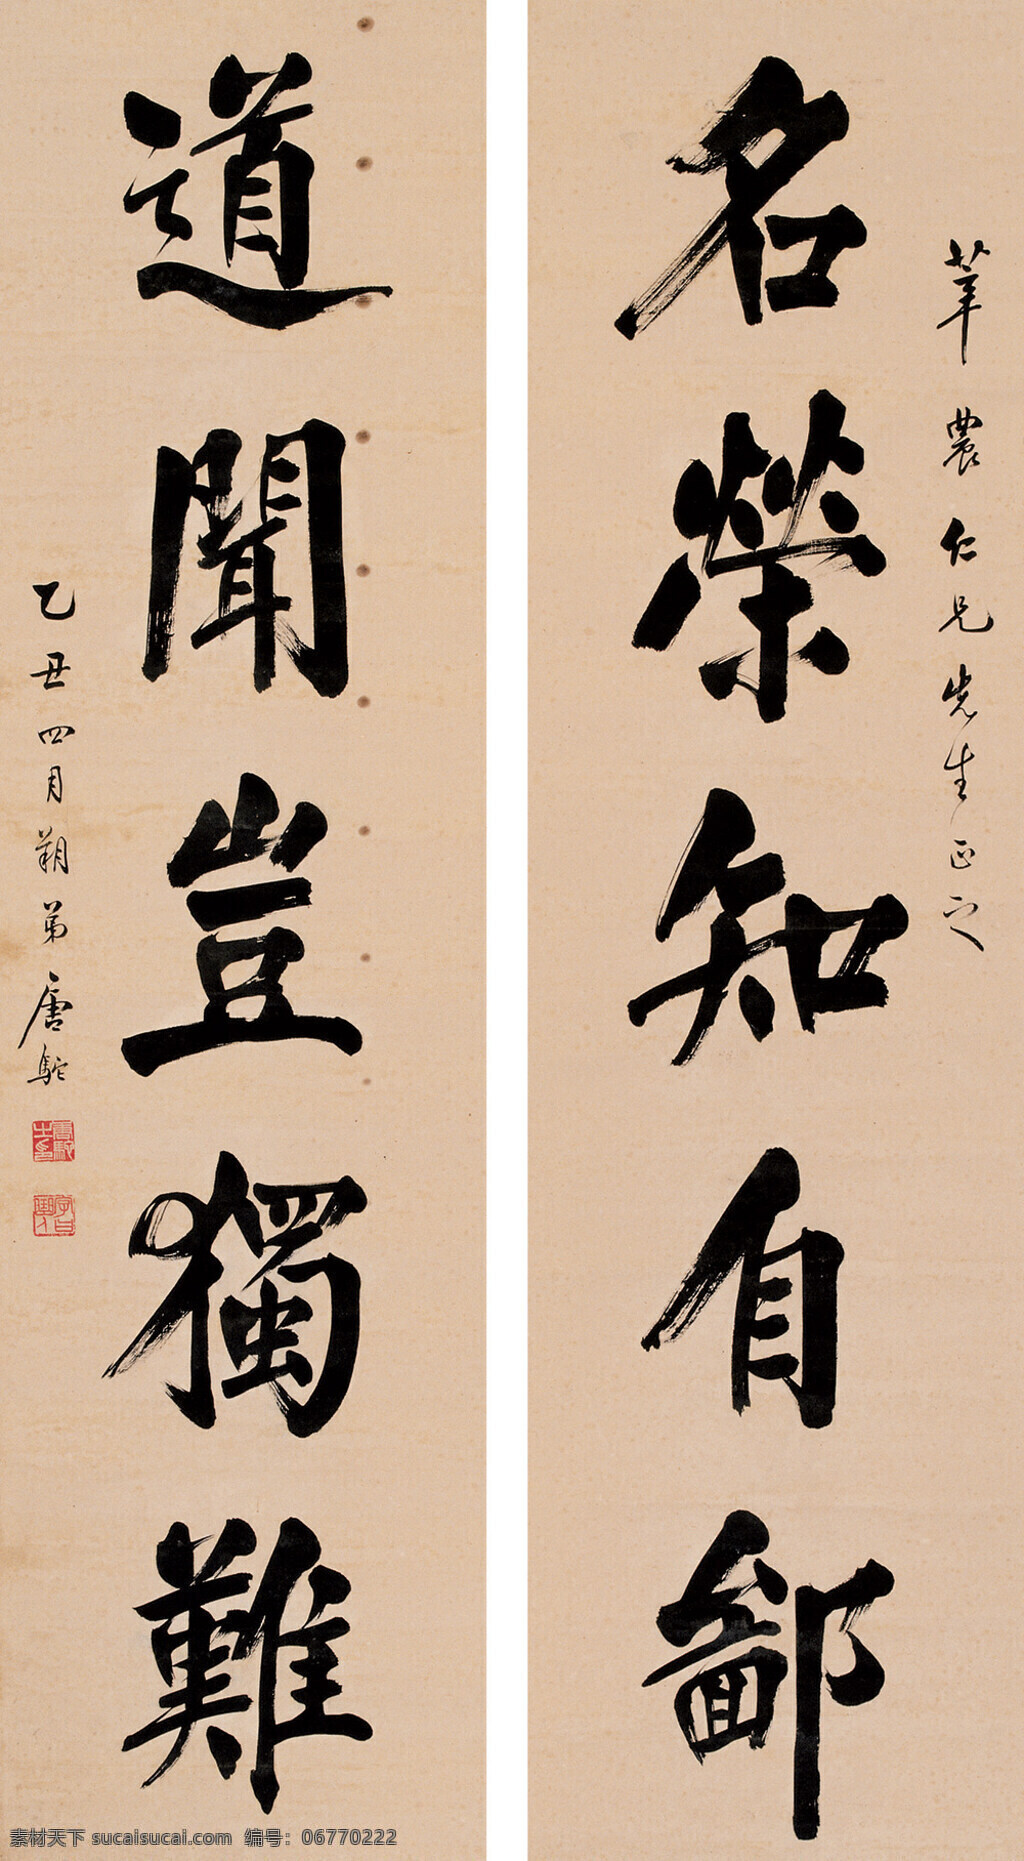 農仁兄先生正之
名榮知自鄙
道聞豈獨難
乙丑四月朔弟唐駝
素材天下 sucaisucai.com 编号：06770222